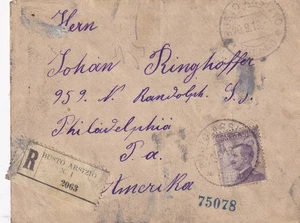 Herrn
Johan Ringhoffer
959. N. Randolph. S.
Philadelphia
Pa.
Amerika
R
BUSTO ARSIZIO
N.
2063
75078